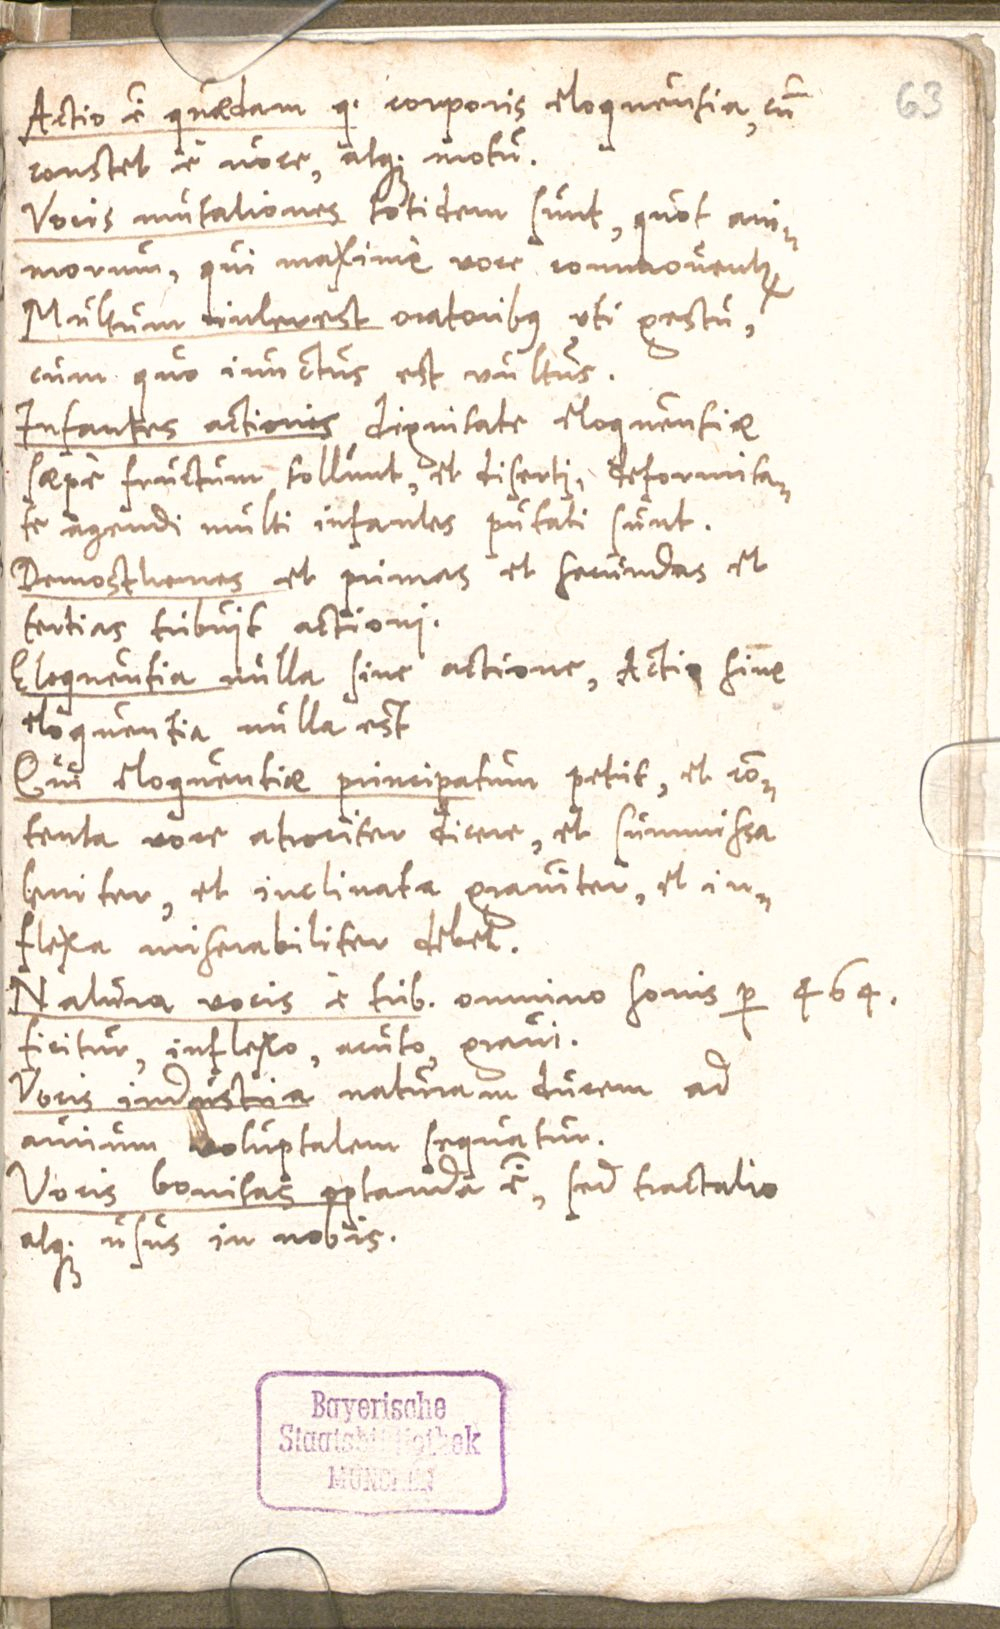 63
Actio ē quædam q. corporis eloquentia, cū
constet è voce, atq. motu.
Vocis mutationes totidem sunt, quot ani„
morum, qui maximè voce commouentr
Multum interest oratoribq vti gestu,
cum quo iunctus est vultus.
Infantes actionis dignitate eloquentiæ
sæpè fructum tollunt, et diserti, deformita„
te agendi multi infantes putati sunt.
Demosthenes et primas et secundas et
tertias tribuit actioni.
Eloquentia nulla sine actione, Actio sine
eloquentia nulla est
Qui eloquentiæ principatum petit, et cō„
tenta voce atrociter dicere, et summissa
leniter, et inclinata grauiter, et in„
flexa miserabiliter debet.
Natura vocis è trib. omnino sonis p 464.
ficitur, inflexo, acuto, graui.
Vocis industria naturam ducem ad
aurium voluptatem sequatur.
Vocis bonitas optanda ē, sed tractatio
atq. usus in nobis.
Bayerische
Staatsbibliothek
MÜNCHEN